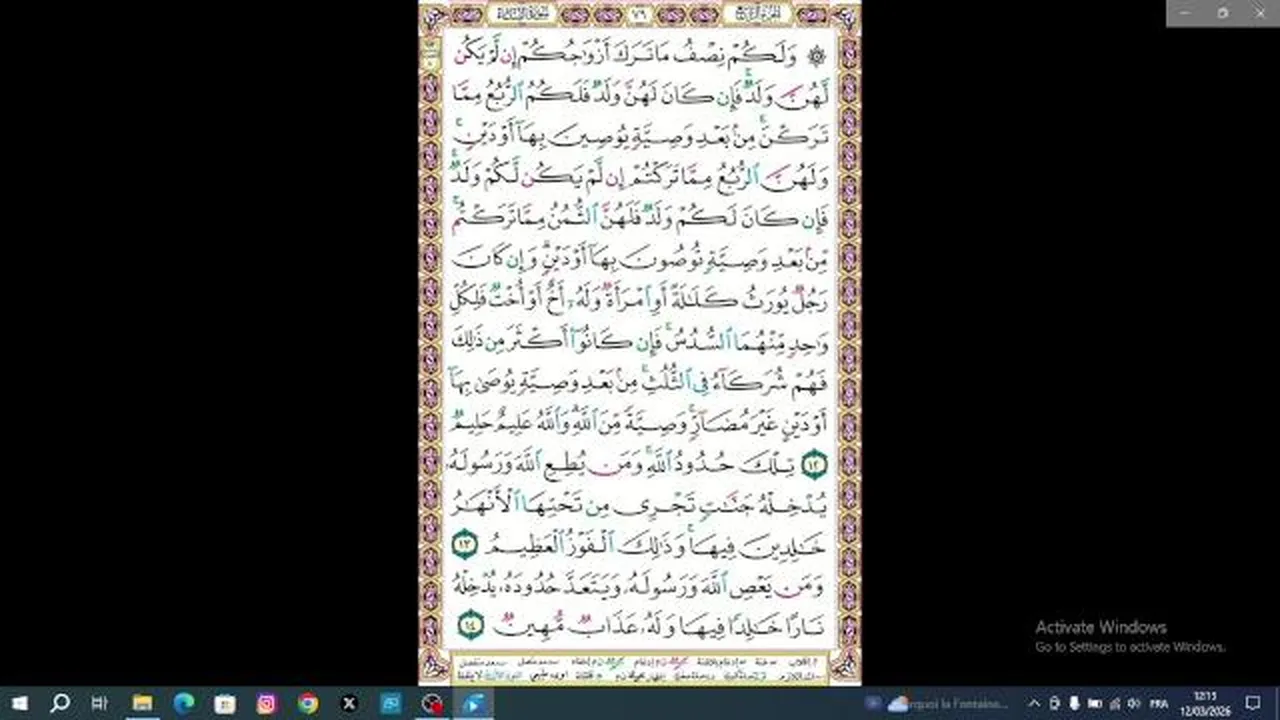 سورة النساء ٧٩ الجزء الرابع
۞ وَلَكُمْ نِصْفُ مَا تَرَكَ أَزْوَٰجُكُمْ إِن لَّمْ يَكُن
لَّهُنَّ وَلَدٌ ۚ فَإِن كَانَ لَهُنَّ وَلَدٌ فَلَكُمُ ٱلرُّبُعُ مِمَّا
تَرَكْنَ ۚ مِنۢ بَعْدِ وَصِيَّةٍ يُوصِينَ بِهَآ أَوْ دَيْنٍ ۚ
وَلَهُنَّ ٱلرُّبُعُ مِمَّا تَرَكْتُمْ إِن لَّمْ يَكُن لَّكُمْ وَلَدٌ ۚ
فَإِن كَانَ لَكُمْ وَلَدٌ فَلَهُنَّ ٱلثُّمُنُ مِمَّا تَرَكْتُم ۚ
مِّنۢ بَعْدِ وَصِيَّةٍ تُوصُونَ بِهَآ أَوْ دَيْنٍ ۗ وَإِن كَانَ
رَجُلٌ يُورَثُ كَلَٰلَةً أَوِ ٱمْرَأَةٌ وَلَهُۥٓ أَخٌ أَوْ أُخْتٌ فَلِكُلِّ
وَٰحِدٍ مِّنْهُمَا ٱلسُّدُسُ ۚ فَإِن كَانُوٓا۟ أَكْثَرَ مِن ذَٰلِكَ
فَهُمْ شُرَكَآءُ فِى ٱلثُّلُثِ ۚ مِنۢ بَعْدِ وَصِيَّةٍ يُوصَىٰ بِهَآ
أَوْ دَيْنٍ غَيْرَ مُضَآرٍّ ۚ وَصِيَّةً مِّنَ ٱللَّهِ ۗ وَٱللَّهُ عَلِيمٌ حَلِيمٌ
١٢ تِلْكَ حُدُودُ ٱللَّهِ ۚ وَمَن يُطِعِ ٱللَّهَ وَرَسُولَهُۥ
يُدْخِلْهُ جَنَّٰتٍ تَجْرِى مِن تَحْتِهَا ٱلْأَنْهَٰرُ
خَٰلِدِينَ فِيهَا ۚ وَذَٰلِكَ ٱلْفَوْزُ ٱلْعَظِيمُ ١٣
وَمَن يَعْصِ ٱللَّهَ وَرَسُولَهُۥ وَيَتَعَدَّ حُدُودَهُۥ يُدْخِلْهُ
نَارًا خَٰلِدًا فِيهَا وَلَهُۥ عَذَابٌ مُّهِينٌ ١٤
Activate Windows
Go to Settings to activate Windows.
FRA
12:15
12/03/2026